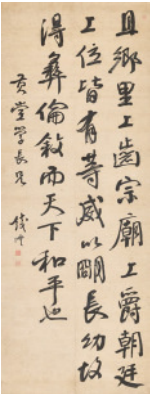 且鄉里上齒宗廟上爵朝廷
上位皆有等威以明長幼故
得彝倫敘而天下和平也
黃堂學長兄
錢灃